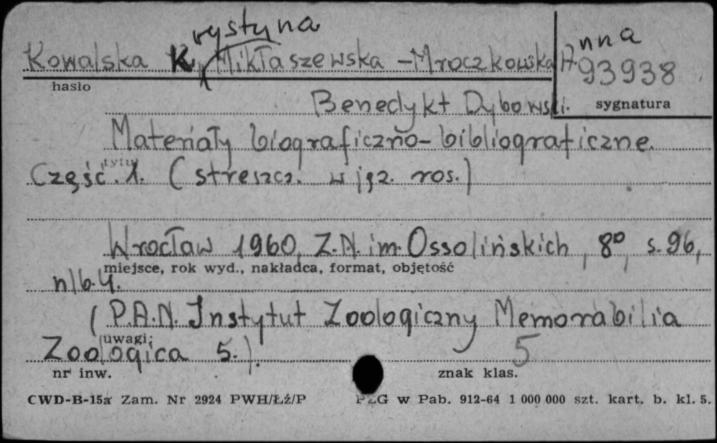 rystyna
Kowalska K. Mikłaszewska-Mroczkowska A. nna
hasło
93938
sygnatura
Benedykt Dybowski.
Materiały biograficzno-bibliograficzne.
tytuł
Część 1. (streszcz. w jęz. ros.)
Wrocław 1960, Z.N. im. Ossolińskich, 8°, s. 96,
miejsce, rok wyd., nakładca, format, objętość
nlb. 4.
(P.A.N. Instytut Zoologiczny Memorabilia
uwagi:
Zoologica 5.).
5
nr inw.
znak klas.
CWD-B-15a Zam. Nr 2924 PWH/Łź/P PZG w Pab. 912-64 1 000 000 szt. kart. b. kl. 5.